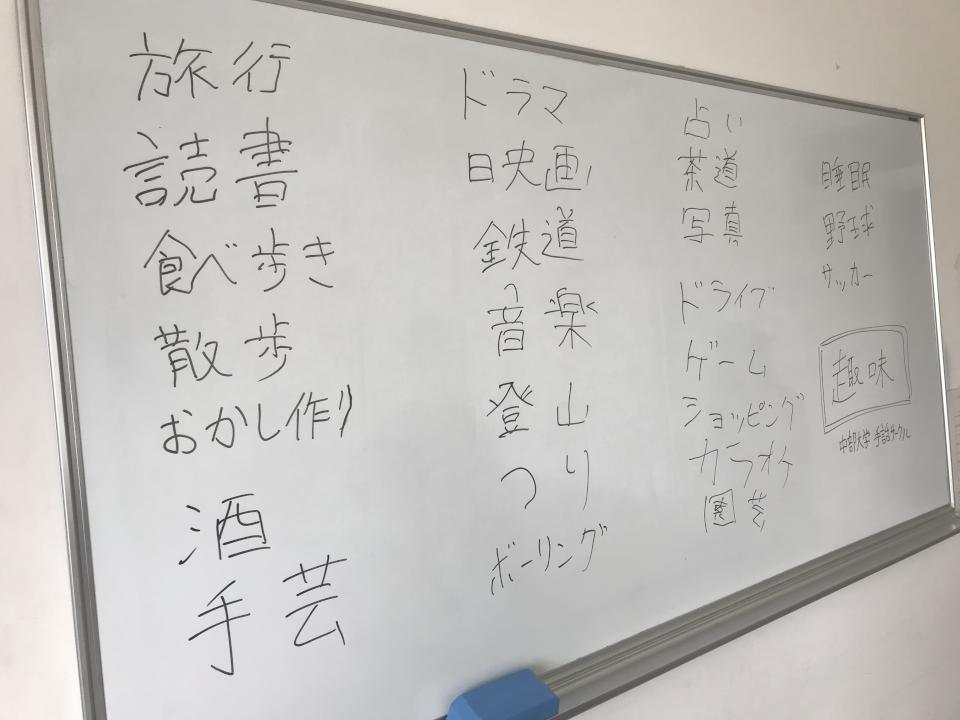 旅行
読書
食べ歩き
散歩
おかし作り
酒
手芸
ドラマ
映画
鉄道
音楽
登山
つり
ボーリング
占い
茶道
写真
ドライブ
ゲーム
ショッピング
カラオケ
園芸
睡眠
野球
サッカー
趣味
中部大学 手話サークル